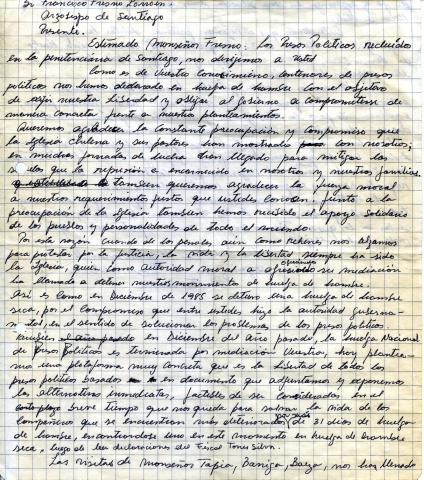 Sr Francisco Fresno Larraín.
Arzobispo de Santiago
Presente.
Estimado Monseñor Fresno: Los Presos Politicos recluidos
en la penitenciaria de Santiago, nos dirijimos a Usted
Como es de Vuestro conocimiento, centenares de presos
politicos nos hemos declarado en huelga de hambre con el objetivo
de exijir nuestra Libertad y obligar al gobierno a comprometerse de
manera concreta frente a nuestros planteamientos.
Queremos agradecer la constante preocupación y compromiso que
la Iglesia Chilena y sus pastores han mostrado con nosotros;
en muchas jornadas de lucha han llegado para mitigar los
que la represión a encarnado en nosotros y nuestros familias.
tambien queremos agradecer la fuerza moral
a nuestros requerimientos justos que ustedes conocen, junto a la
preocupación de la Iglesia tambien hemos recibido el apoyo solidario
de los pueblos y personalidades de todo el mundo.
Por esta razón cuando de los penales, aún como rehenes nos alzamos
para protestar por la justicia, la vida y la libertad siempre ha sido
la Iglesia, quien como autoridad moral a ofrecido su mediación
ha llamado a detener nuestros movimientos de huelga de hambre.
Asi es como en Diciembre de 1985 se detuvo una huelga de hambre
seca, por el compromiso que entre ustedes hizo la autoridad guberna-
mental, en el sentido de solucionar los problemas de los presos politicos.
en Diciembre del año pasado, la huelga Nacional
de presos politicos es terminada por mediación Vuestra, hoy plantea-
mos una plataforma muy concreta que es la Libertad de todos los
presos politicos basados en documento que adjuntamos y exponemos
las alternativas inmediatas, factibles de ser consideradas en el
breve tiempo que nos queda para salvar la vida de los
compañeros que se encuentran más deteriorados de 31 dias de huelga
de hambre, encontrandose uno en este momento en huelga de hambre
seca, luego de las declaraciones del Fiscal Torres Silva.
Las visitas de monseñor Tapia, Bariga, Baeza, nos ha llevado